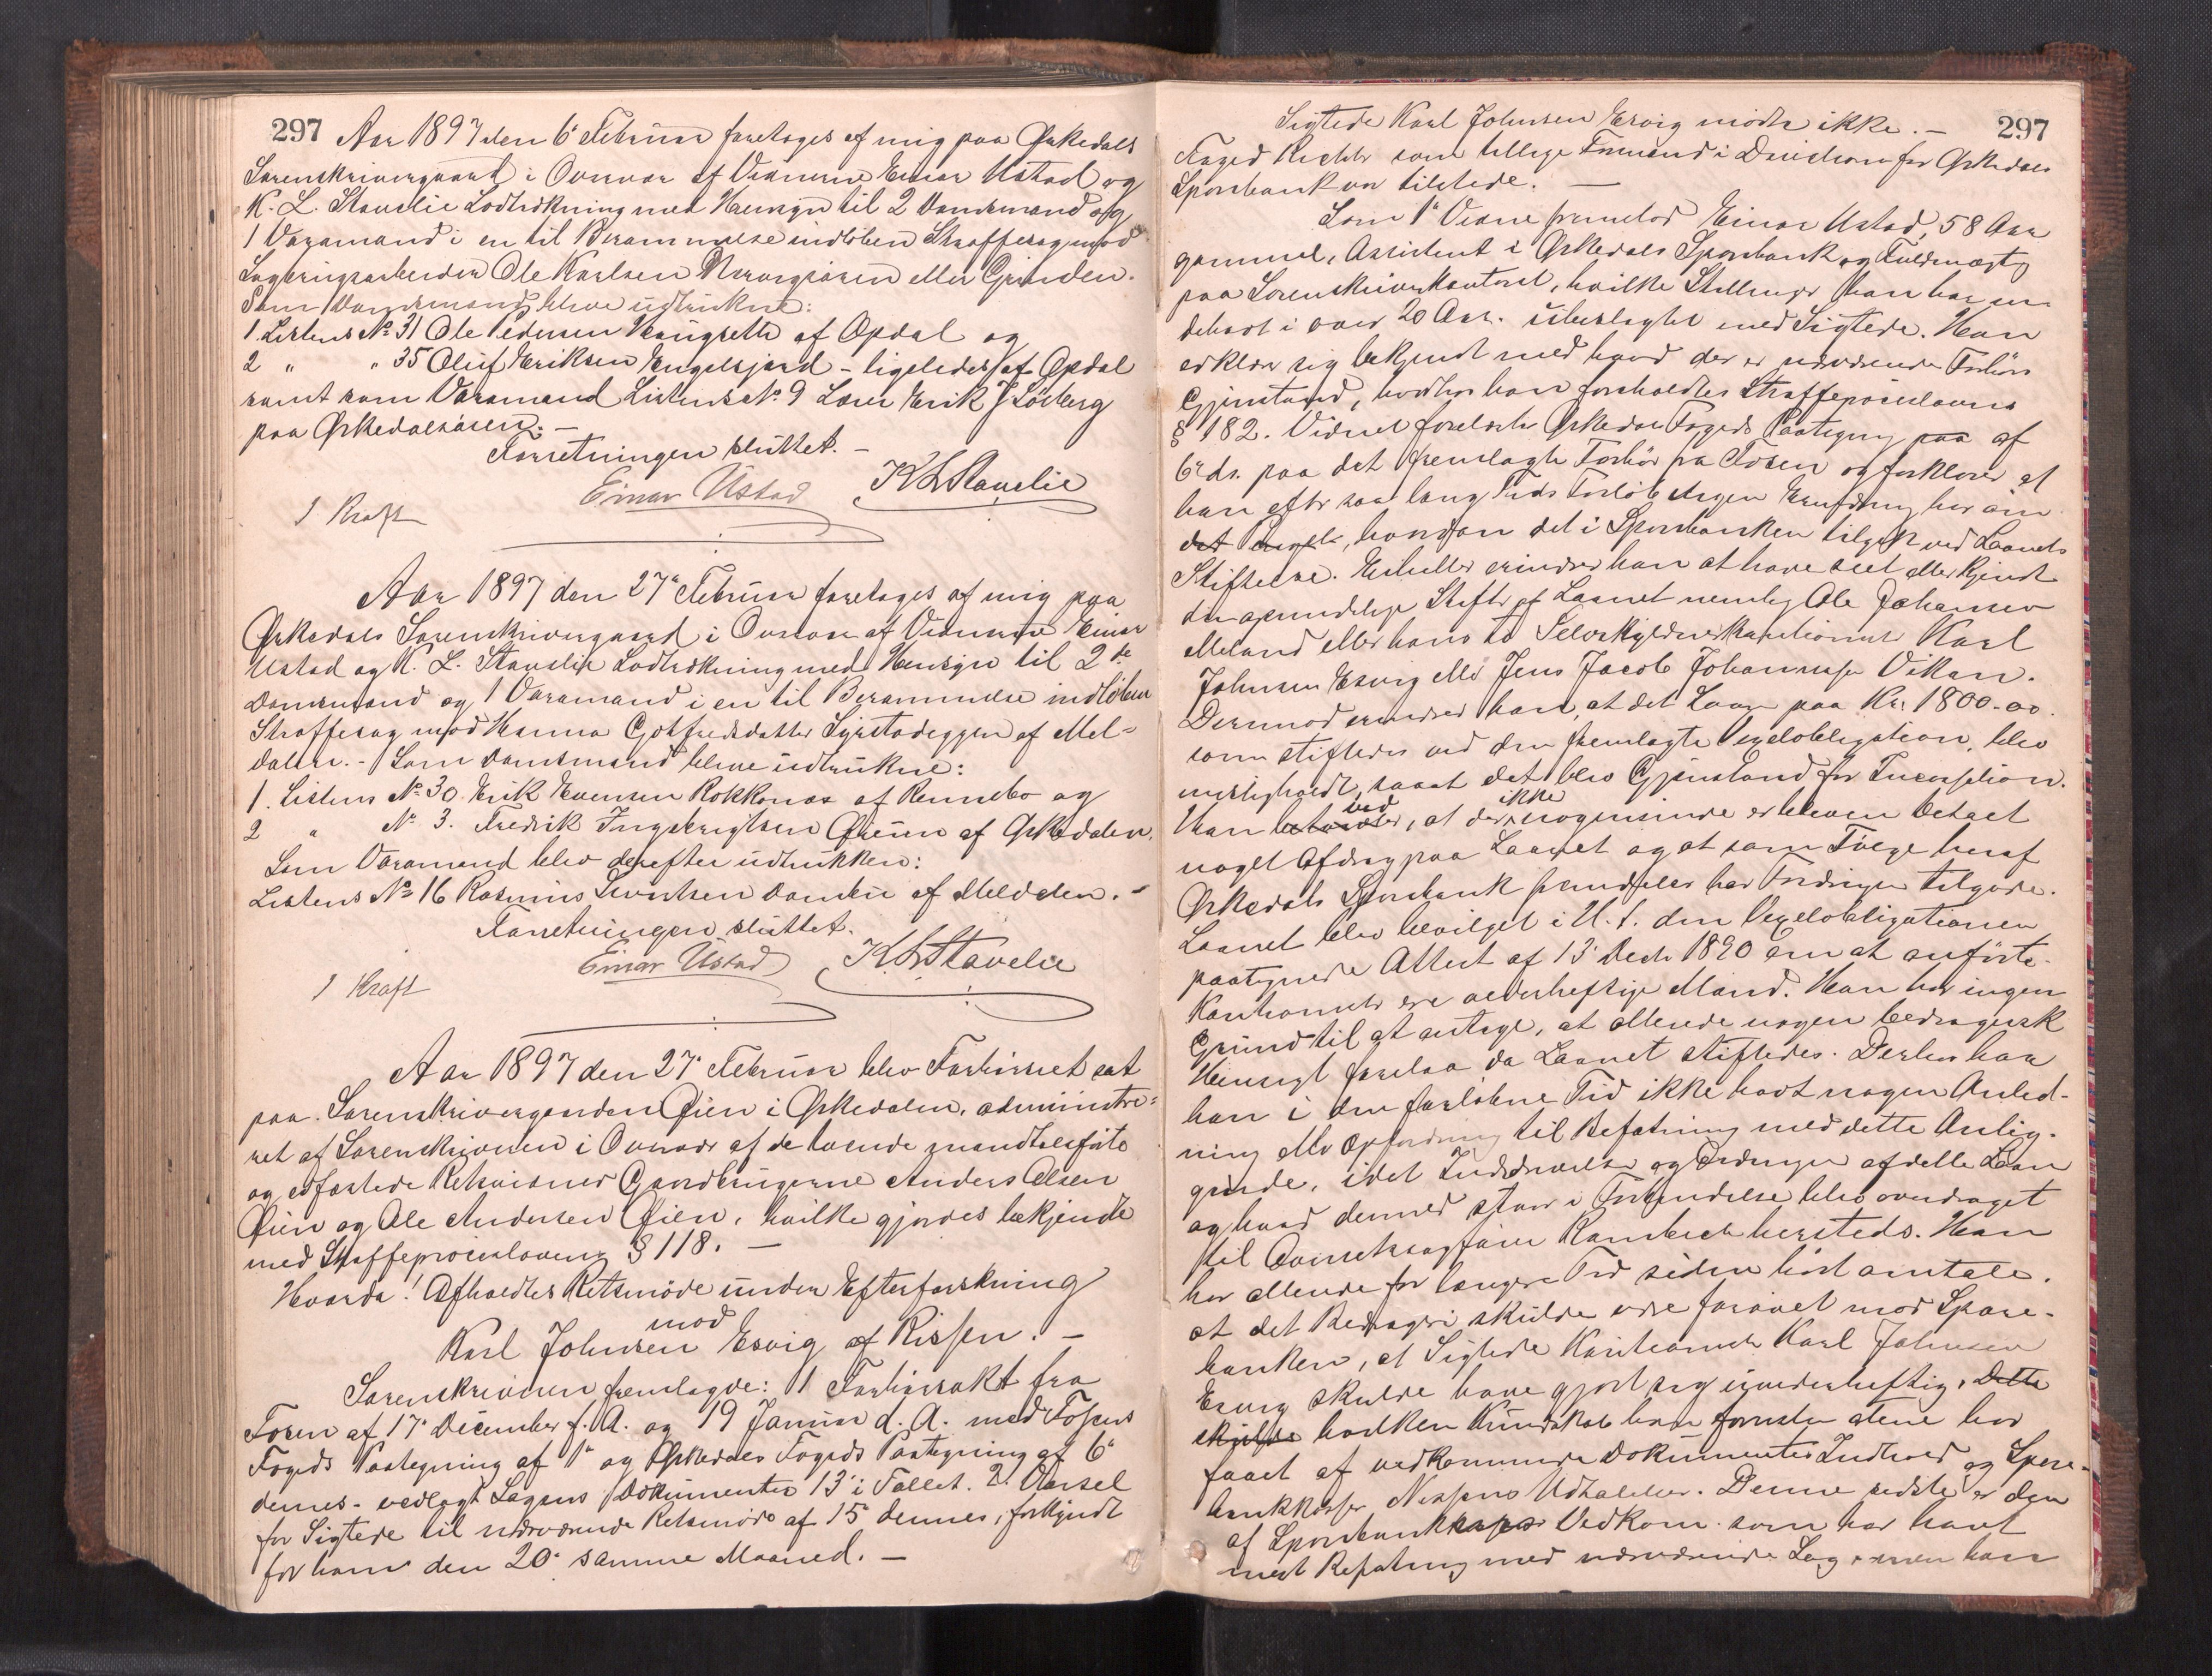 297
Aar 1897 den 6' Februar foretoges af mig paa Ørkedals
Sorenskrivergaard i Overvær af Vidnerne Einar Ustad og
K. L. Stavelie Lodtrækning med Hensyn til 2 Domsmænd og
1 Varamand i en til Berammelse indløben Straffesag mod
Ole Karlsen eller Grinden.
Som Domsmænd bleve udtrukne:
1. Listens No 31 Ole Pedersen Haugsette af Opdal og
2 " " 35 Oluf Eriksen Engelsjord - ligeledes af Opdal
samt som Varamand Listens No. 9 Lærer Erik J Solberg
paa Ørkedalsøren. -
Forretningen sluttet. -
J Kraft Einar Ustad KLStavelie
Aar 1897 den 27' Februar foretoges af mig paa
Ørkedals Sorenskrivergaard i Overvær af Vidnerne Einar
Ustad og K. L. Stavelie Lodtrækning med Hensyn til 2de
Domsmænd og 1 Varamand i en til Berammelse indløben
Straffesag mod Hanna Gotfredsdatter Syrstadeggen af Mel-
dalen. - Som Domsmænd bleve udtrukne:
1. Listens No 30 Erik Evensen Rokkones af Rennebo og
2 " No 3. Fredrik Ingebrigtsen Øien af Ørkedalen.
Som Varamand blev derefter udtrukken:
Listens No 16 Rasmus Sivertsen af Meldalen. -
Forretningen sluttet.
J Kraft Einar Ustad KLStavelie
Aar 1897 den 27' Februar blev Forhørsret sat
paa Sorenskrivergaarden Øien i Ørkedalen, administre-
ret af Sorenskriveren i Overvær af de tvende mandtalsførte
og edfæstede Retsvidner Gaardbrugerne Anders Olsen
Øien og Ole Andersen Øien, hvilke gjordes bekjendt
med Straffeproceslovens § 118. -
Hvorda! Afholdtes Retsmøde under Efterforskning
mod
Karl Johnsen Esvig af Rissen. -
Sorenskriveren fremlagde: 1 Forhørsakt fra
Fosen af 17' December f. A. og 19 Januar d. A. med Fosens
Fogeds Paategning af 1' og Ørkedals Fogeds Paategning af 6'
dennes - vedlagt Sagens Dokumenter 13 i Tallet. 2. Varsel
for Sigtede til nærværende Retsmøde af 15' dennes, forkyndt
for ham den 20' samme Maaned. -
297
Sigtede Karl Johnsen Esvig mødte ikke. -
Foged Richter som tillige Formand i Direktionen for Ørkedals
Sparebank var tilstede. -
Som 1' Vidne fremstod Einar Ustad, 58 Aar
gammel, Assistent i Ørkedals Sparebank og Fuldmægtig
paa Sorenskriverkontoret, hvilke Stillinger han har in-
dehavt i over 20 Aar. Ubeslægtet med Sigtede. Han
erklærer sig bekjendt med hvad der er nærværende Forhørs
Gjenstand, hvorhos han foreholdtes Straffeproceslovens
§ 182. Vidnet forelæstes Ørkedals Fogeds Paategning paa af
6' ds. paa det fremlagte Forhør fra Fosen og forklarer at
han efter saa lang Tids Forløb ingen Erindring har om
det , hvordan det i Sparebanken tilgik ved Laanets
Stiftelse. Ei heller erindrer han at have seet eller kjendt
den oprindelige Stifter af Laanet nemlig Ole Johansen
Meland eller hans to Selvskyldnerkautionister Karl
Johnsen Esvig eller Jens Jacob Johannesen Vikan.
Derimod erindrer han, at det Laan paa Kr. 1800-00
som stiftedes ved den fremlagte Vexelobligation, blev
misligholdt, saaat det blev Gjenstand for Incassation.
ved ikke
Han , at der nogensinde er bleven betalt
noget Afdrag paa Laanet og at som Følge heraf
Ørkedals Sparebank fremdeles har Fordringen tilgode.
Laanet blev bevilget i H. t. den Vexelobligationen
paategnede Attest af 13' Decbr 1890 om at anførte
Kautionister ere vederheftige Mænd. Han har ingen
Grund til at antage, at allerede nogen bedragersk
Hensigt forelaa da Laanet stiftedes. Derhos har
han i den forløbne Tid ikke havt nogen Anled-
ning eller Opfordring til Befatning med dette Anlig-
gende, idet Inddrivelse og Ordningen af dette Laan
og hvad dermed staar i Forbindelse blev overdraget
til Overretssagfører Rambech hersteds. Han
har allerede for længere Tid siden hørt omtale,
at det Bedrageri skulde være forøvet mod Spare-
banken, at Sigtede Kautionist Karl Johnsen
Esvig skulde have gjort sig uvederheftig. Dette
skulde hvilken Kundskab han formentlig har
faaet af vedkommende Dokumenters Indhold og Spare-
bankkasser Udtalelser. Denne sidste er den
af Sparebankkasse Vedkom. som har havt
mest Befatning med nærværende Sag, men han